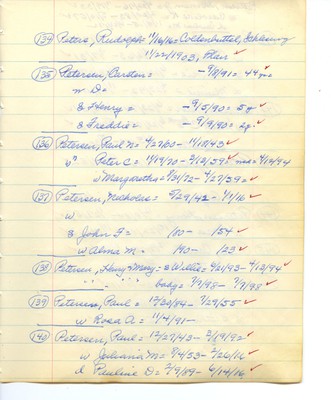 (134) Peters, Rudolph = 7/16/16 = Coldenbuttel, Schleswig
11/22/1903, Plain ✓
(135) Petersen, Carsten = - 9/8/91 = 44 yrs ✓
w D =
s Henry = - 9/5/90 = 5 y ✓
s Freddie = - 9/9/90 = 2 y. ✓
(136) Petersen, Paul N = 4/27/60 - 11/17/43 ✓
" Peter C = 11/19/70 - 3/12/39 ✓ mar = 4/12/94
w Margaretha = 8/31/72 - 4/27/39 = ✓
(137) Petersen, Nicholas = 5/29/42 - 1/1/16 ✓
w
s John F = 180 - 154 ✓
w Alma M. 190 - 123 ✓
(138) Petersen, Henry + Mary = s Willie = 4/21/93 - 4/12/94 ✓
" " " baby = 7/9/98 - 7/9/98 ✓
(139) Petersen, Paul = 12/20/84 - 7/29/55 ✓
w Rosa A = 11/4/91 -
(140) Petersen, Paul = 12/27/43 - 3/19/92 ✓
w Juliana M = 8/4/53 - 2/26/16 ✓
d Pauline D = 2/9/89 - 6/14/16 ✓